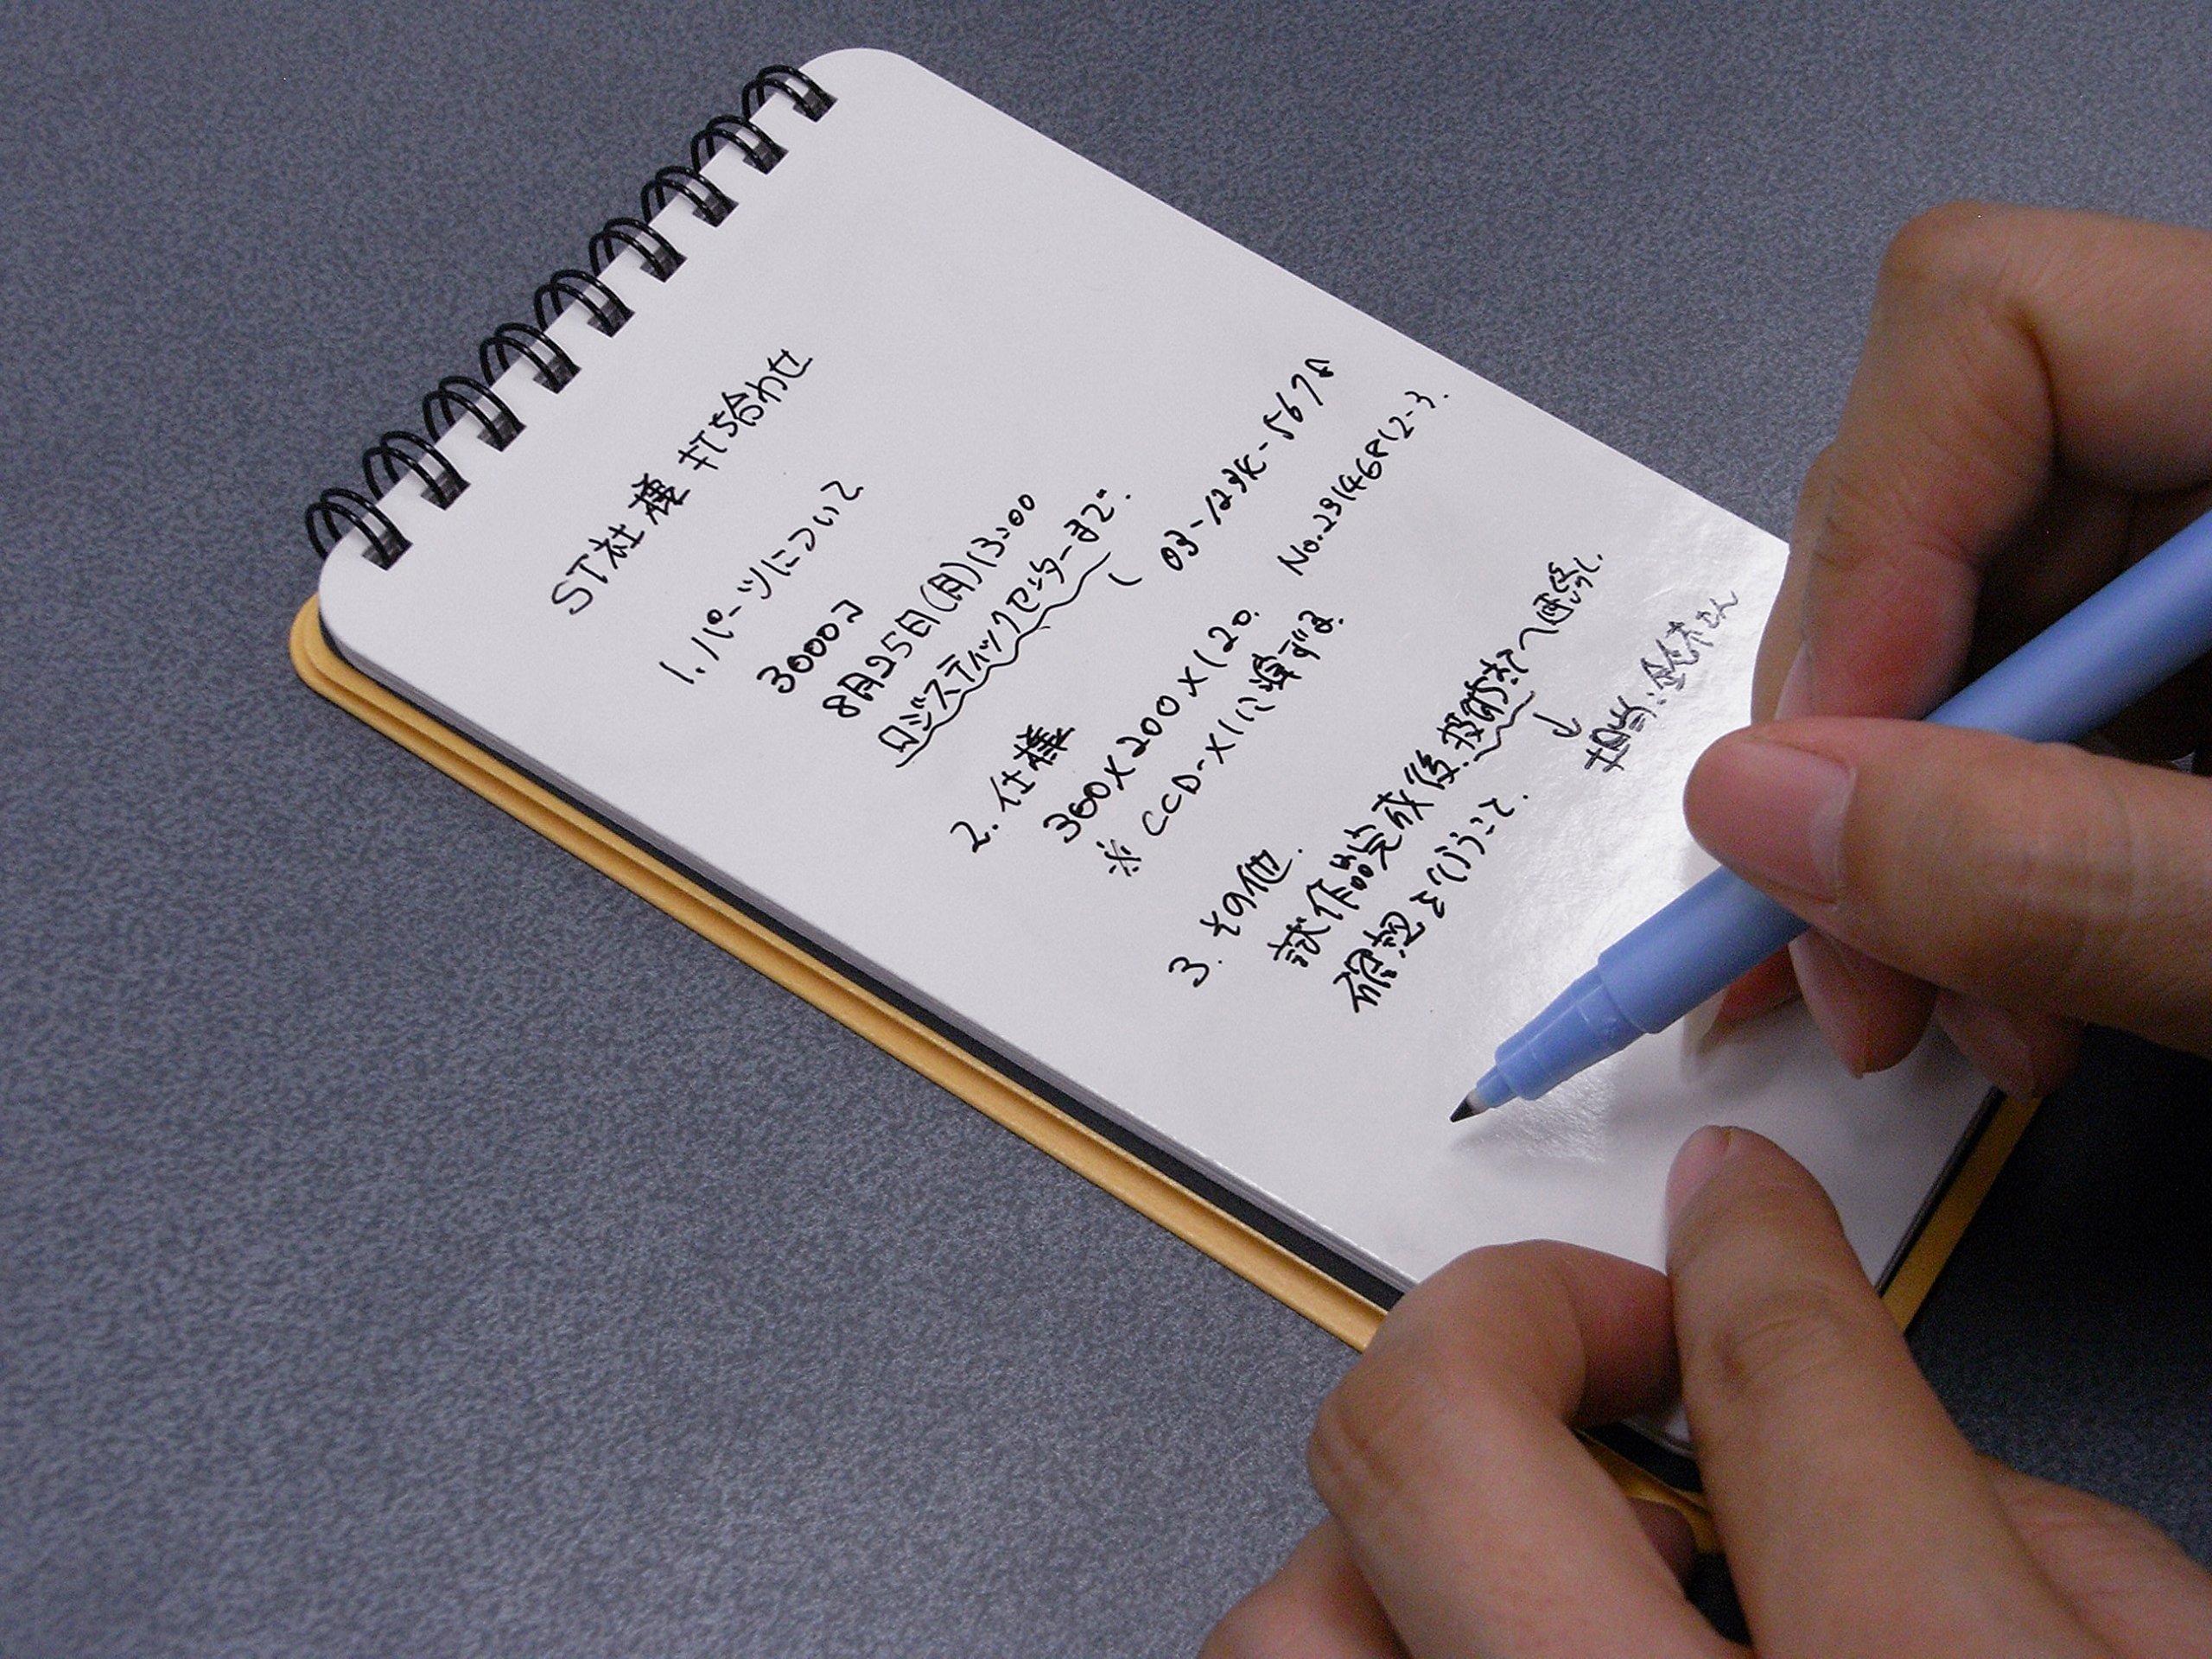 ST社様 打ち合わせ
1. パーツについて
3000コ
8月25日(月)13:00
ロジスティックセンターまで.
03-1234-5678
2. 仕様
300×200×120.
No.2314681
※CCD-X1に準ずる.
3. その他.
試作品完成後、技術部へ
担当:鈴木さん
確認を行うこと.